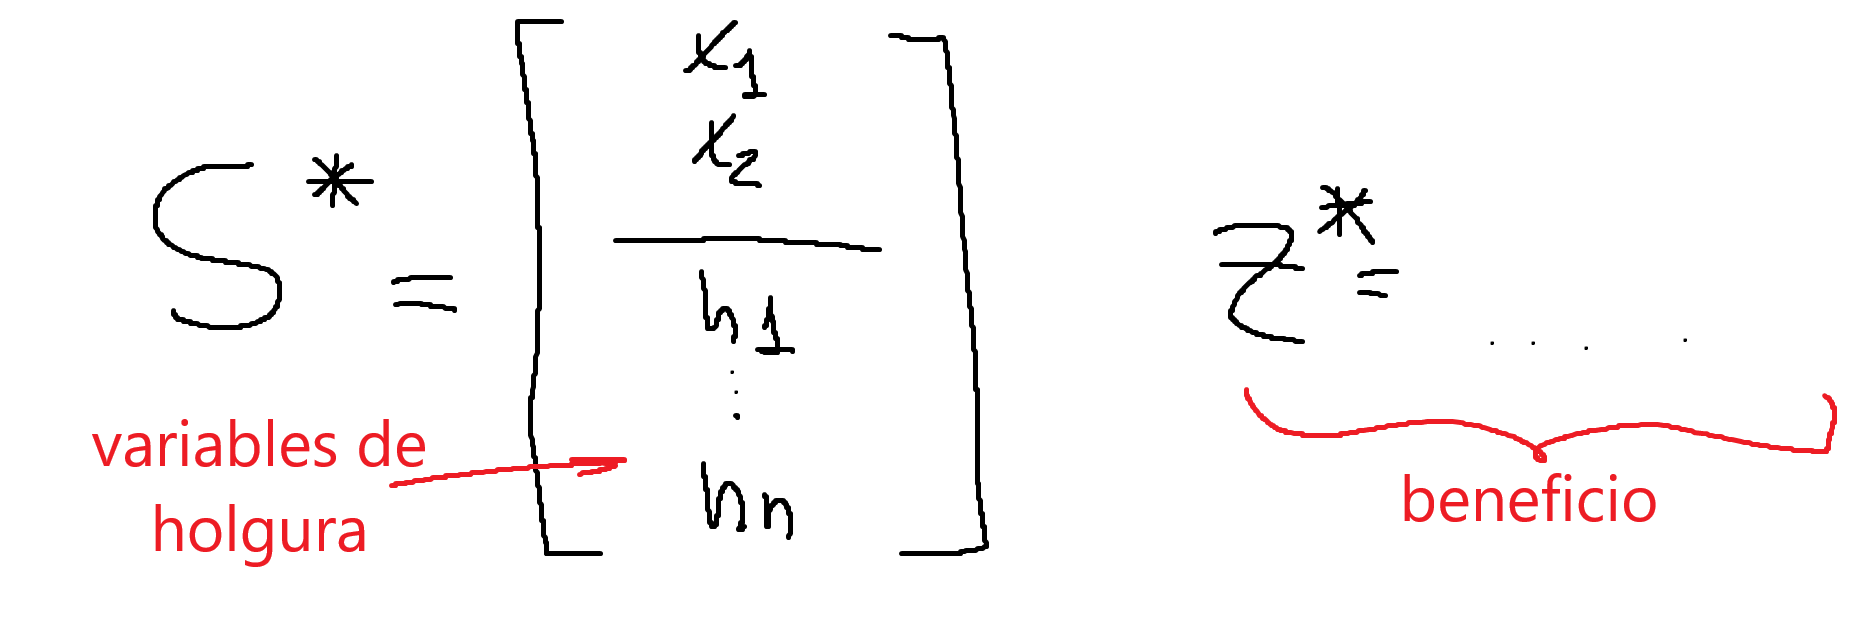 x1
x2
S* =
h1
⋮
hn
Z* = ....
variables de
holgura
beneficio